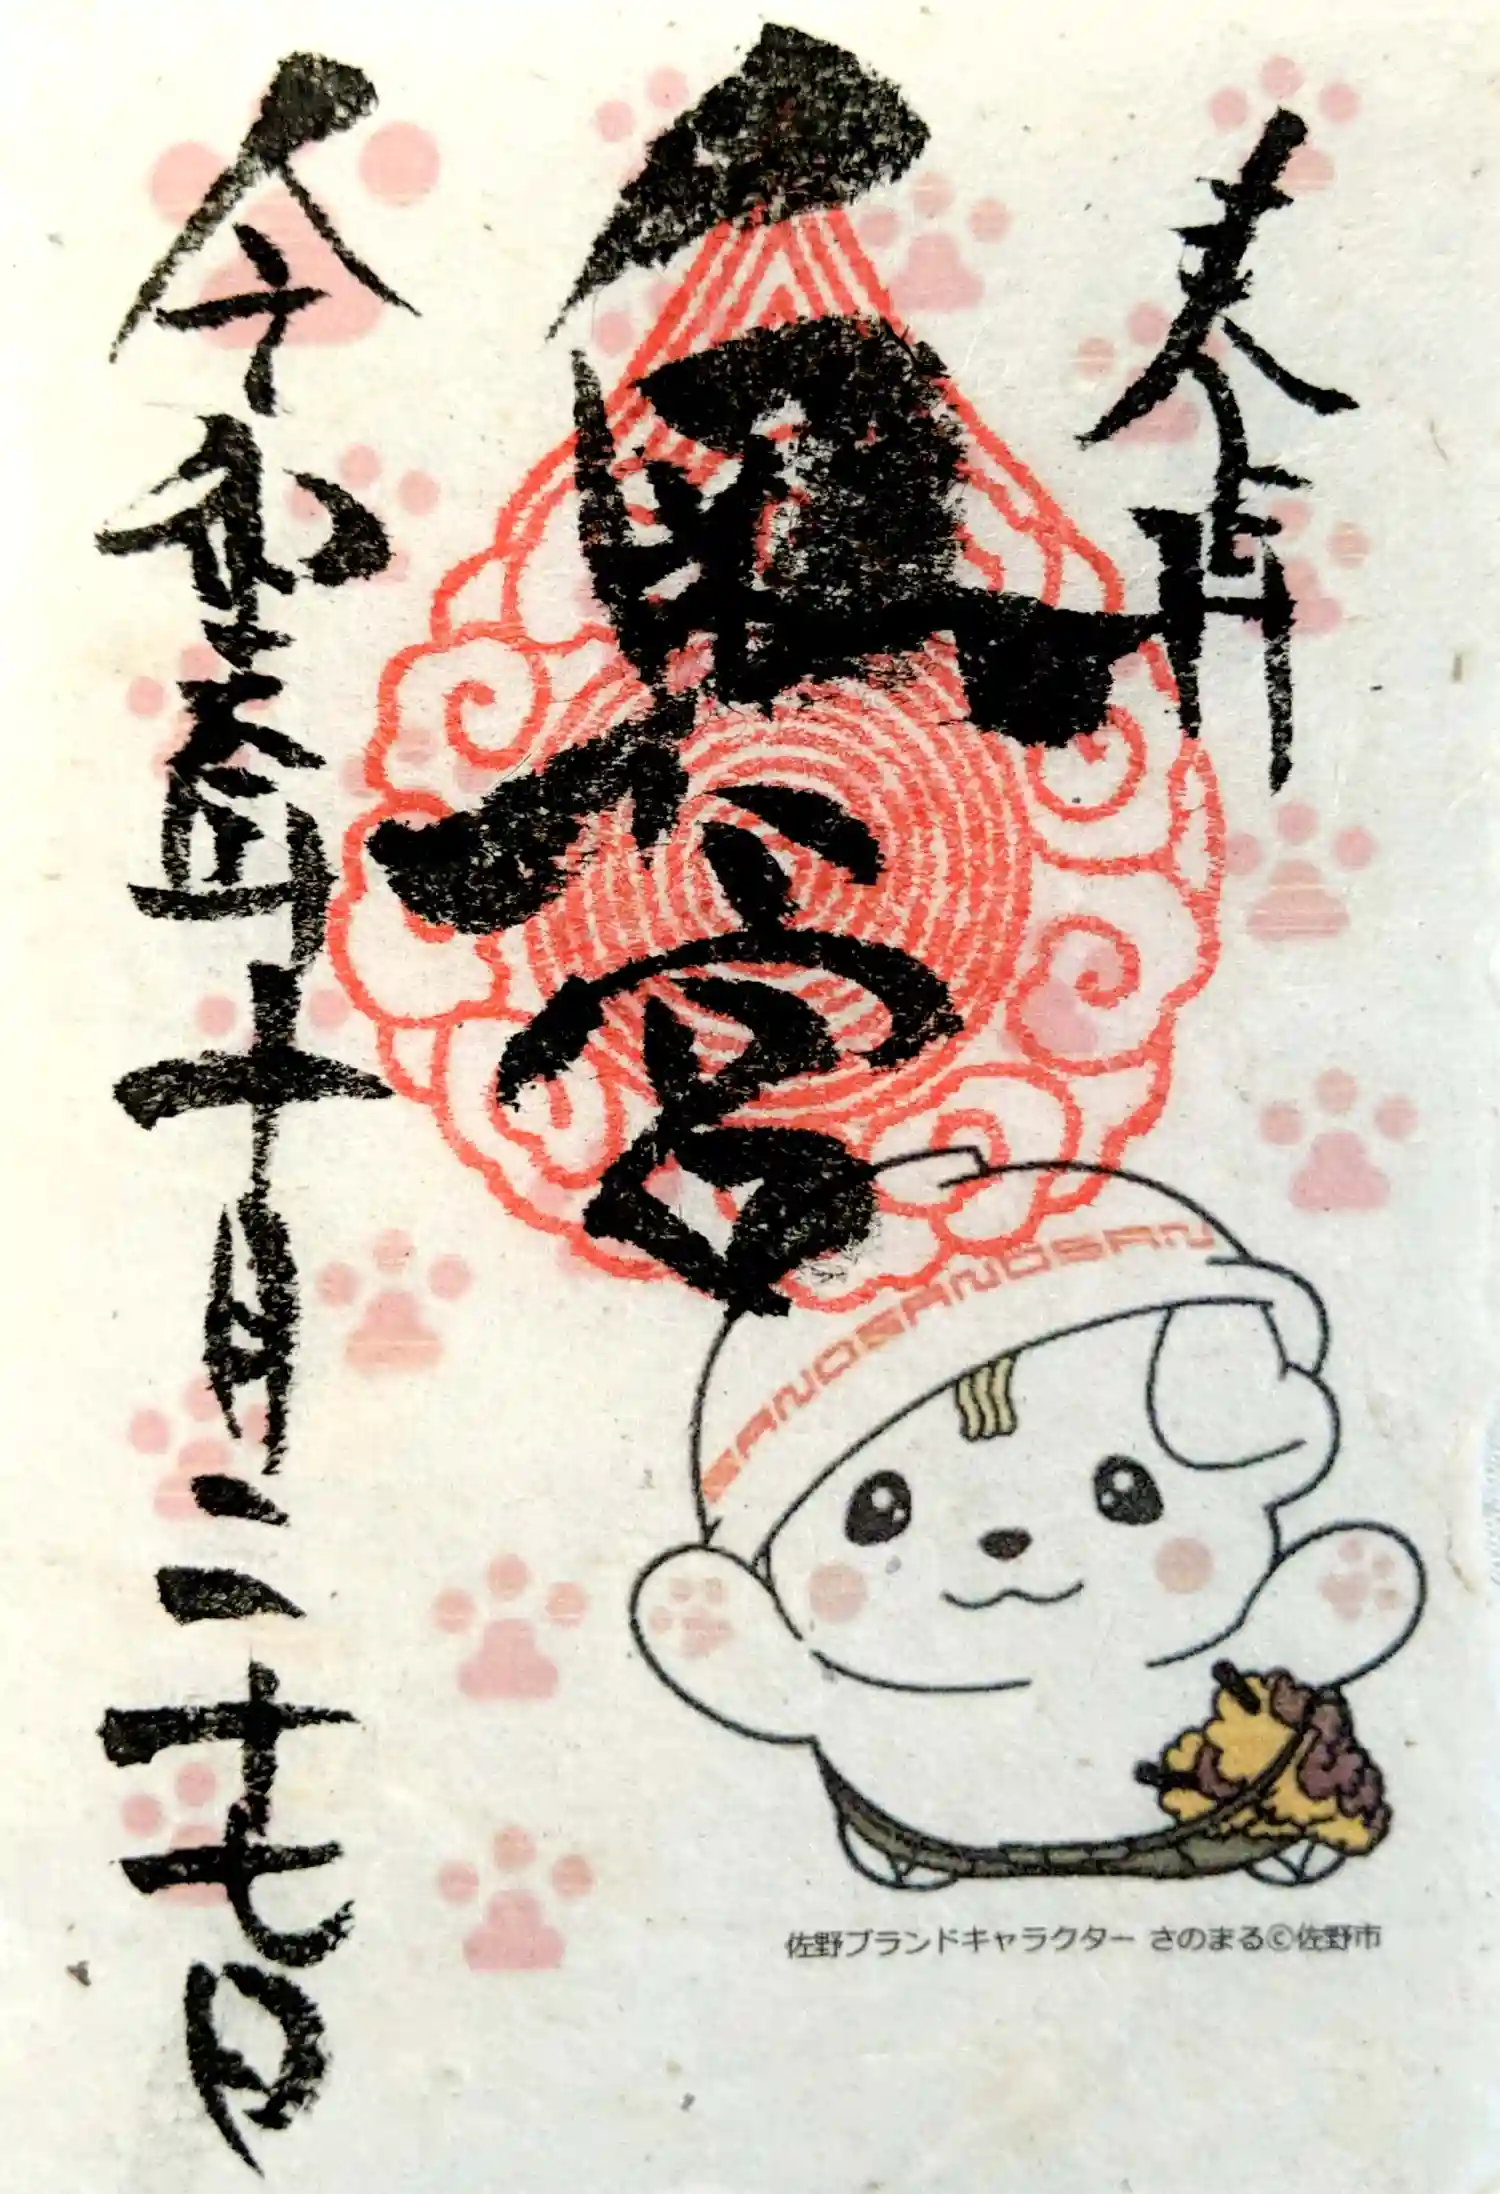 奉拝
令和参年十月二十七日
SANOSANOSAN
佐野ブランドキャラクター さのまる©佐野市